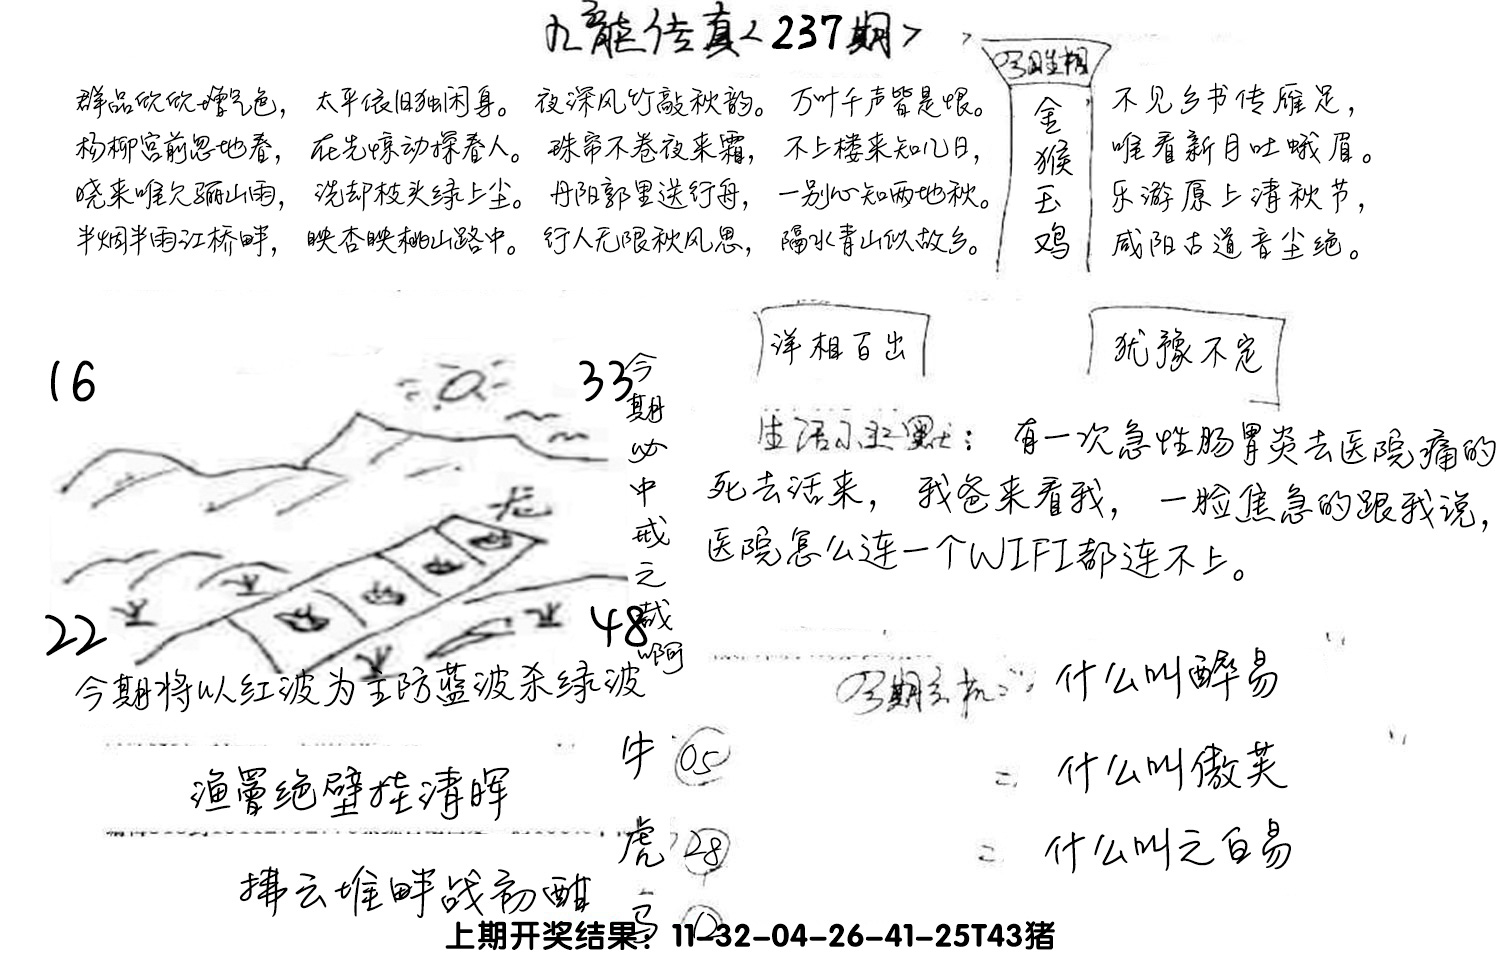 九龙传真<237期>
群品欣欣增气色， 太平依旧独闲身。 夜深风竹敲秋韵。 万叶千声皆是恨。
杨柳宫前忽地春， 在先惊动探春人。 珠帘不卷夜来霜， 不上楼来知几日，
晓来唯欠骊山雨， 洗却枝头绿上尘。 丹阳郭里送行舟， 一别心知两地秋。
半烟半雨江桥畔， 映杏映桃山路中。 行人无限秋风思， 隔水青山似故乡。
金
猴
玉
鸡
不见乡书传雁足，
唯看新月吐蛾眉。
乐游原上清秋节，
咸阳古道音尘绝。
洋相百出
犹豫不定
16
33
22
48
龙
今期必中戒之哉啊
今期将以红波为主防蓝波杀绿波
生活小幽默： 有一次急性肠胃炎去医院痛的
死去活来， 我爸来看我， 一脸焦急的跟我说，
医院怎么连一个WIFI都连不上。
渔罾绝壁挂清晖
拂云堆畔战初酣
牛 05
虎 28
马 12
今期玄机： 什么叫醉易
= 什么叫傲芙
= 什么叫元白易
上期开奖结果：11-32-04-26-41-25T43猪